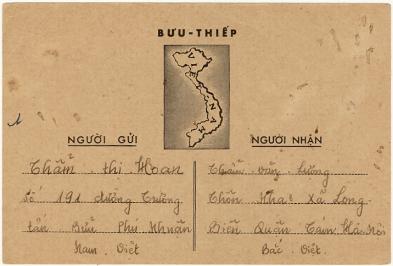 BƯU-THIẾP
VIỆT NAM
NGƯỜI GỬI
Thẩm thị Hoan
Số 191 đường Trương
tấn Bửu Phú Nhuận
Nam Việt
NGƯỜI NHẬN
Thẩm văn Lương
Thôn Nhai Xã Long
Biên Quận Hà Nội
Bắc Việt